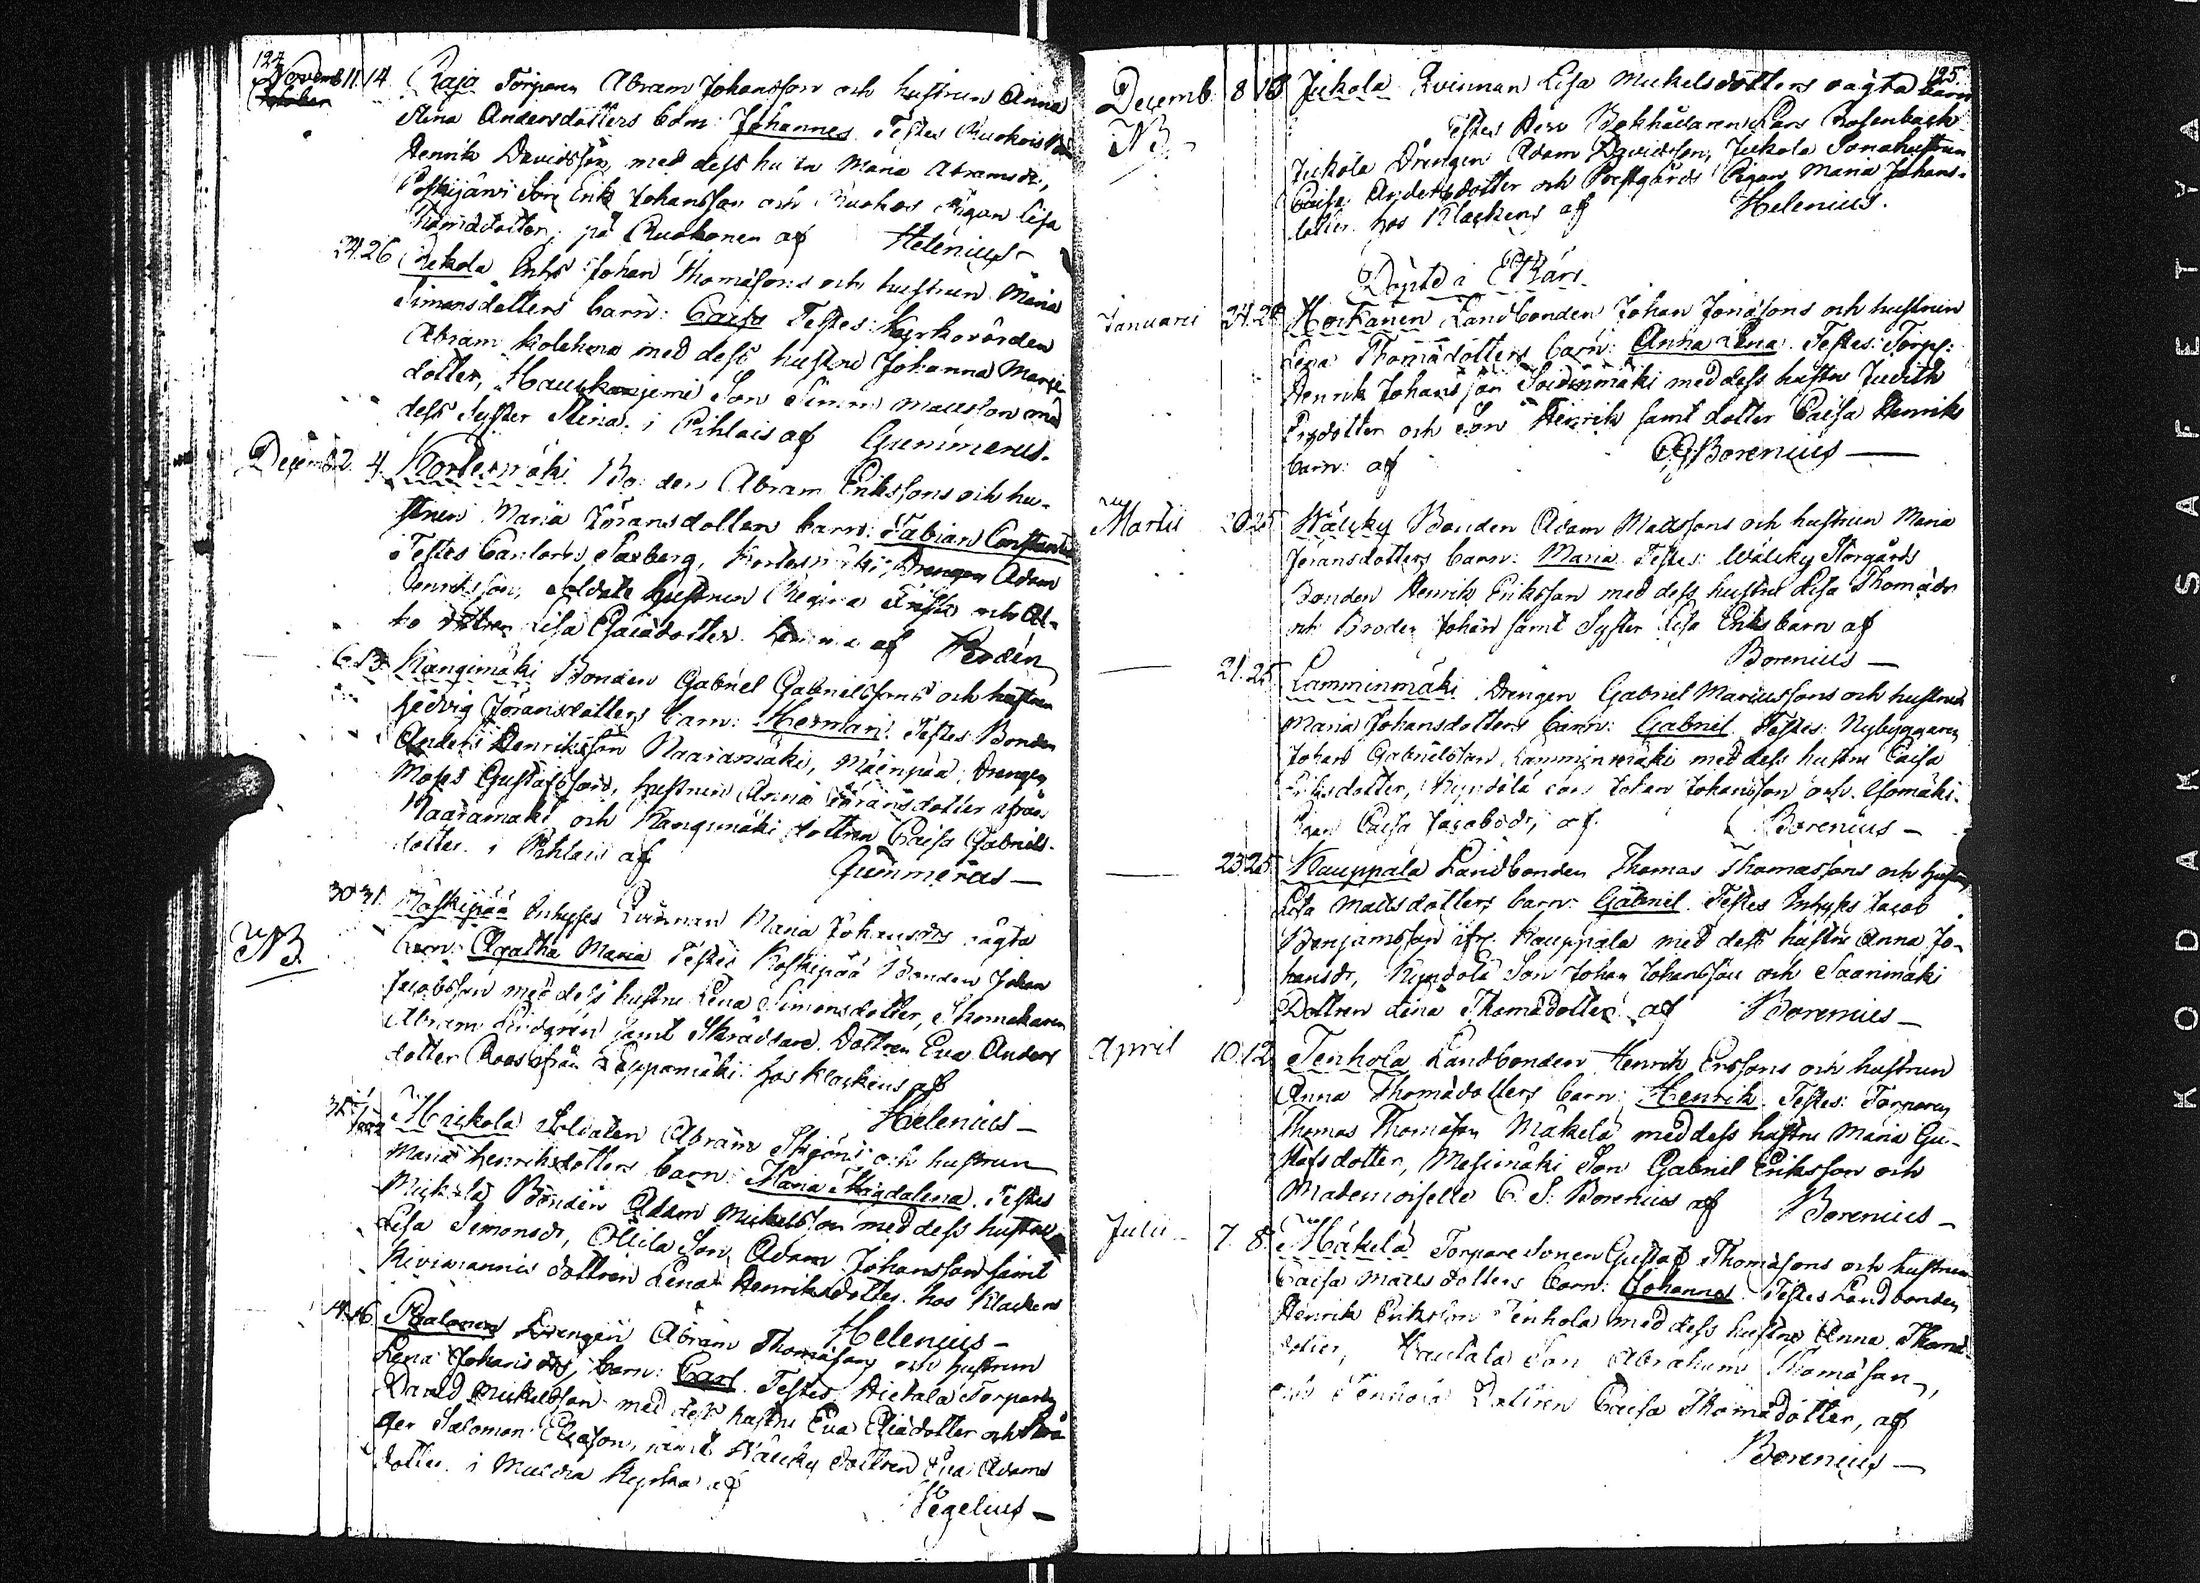 124
Novemb. 11. 14. Raja Torparen Abram Johansson och hustrun Anna
Stina Andersdotters barn: Johannes. Testes
Henrik Davidsson, med dess hustru Maria Abramsdr,
Son Erik Johansson och Pigan Lisa
Thomædotter, på Ruokonen af Helenius
24. 26 Inhs Johan Thomæsons och hustrun Maria
Simonsdotters barn: Caisa Testes: Kyrkovärden
Abram med dess hustru Johanna
dotter, Haukaniemi Son Simon Mattsson med
dess Syster Stina. i Pihlais af Gummerus.
Decemb. 2. 4. Kortesmäki Bonden Abram Erikssons och hu-
strun Maria Jöransdotters barn: Fabian Constantin
Testes Cantorn Saxberg, Kortesmäki Drengen Adam
Henriksson, Soldate hustrun Regina och
dottren Lisa Esaiædotter. af Roden
6. 13. Kangimäki Bonden Gabriel Gabrielssons och hustrun
Hedvig Jöransdotters barn: Herman. Testes: Bonden
Anders Henriksson Naaramäki, Mäenpää Drengen
Moses Gustafsson, hustrun Anna Jöransdotter ifrån
Naaramäki och Kangimäki dottren Caisa Gabriels-
dotter. i Pihlais af Gummerus
30 31. Koskipää Inhyses Qvinnan Maria Johansdrs oägta
NB.
barn: Agatha Maria Testes Koskipää Bonden Johan
Jacobsson med dess hustru Lena Simonsdotter, Skomakaren
Abram Lindgren samt Skräddare Dottren Eva Anders
dotter Roos ifrån Leppämäki. hos Klackens af
Helenius
Mickola Soldaten Abram och hustrun
Maria Henriksdotters barn: Maria Magdalena. Testes
Mickola Bonden Adam Mickelsson med dess hustru
Lisa Simonsdr, Ollila Son Adam Johansson samt
dottren Lena Henriksdotter. hos Klackens
Helenius
14. 16. Drengen Abram Thomæsons och hustrun
Lena Johansdrs barn: Carl. Testes Hietala Torparen
David Mickelsson med dess hustru Eva Eliædotter och
Salomon Eliæson, samt Wäliky dottren Eva Adams
dotter. i Muldia Kyrka af
Hegelius
125.
Decemb. 8 10 Jukola Qvinnan Lisa Mickelsdotters oägta barn
NB.
Testes Herr Bokhållaren Lars Rosenback
Jukola Drengen Adam Davidsson, Jukola Sonahustrun
Caisa Andersdotter och Prestgårds Pigan Maria Johans-
dotter. hos Klackens af Helenius.
Döpte i Etzäri
Januarii 24. 26 Hoikanen Landbonden Johan Jonæsons och hustrun
Lena Thomædotters barn: Anna Lena. Testes: Torp:
Henrik Johansson Soidinmäki med dess hustru Judith
dotter och Son Henrik samt dotter Caisa Henriks
barn: af Borenius
Martii 20 25 Wäliky Bonden Adam Mattssons och hustrun Maria
Jöransdotters barn: Maria. Testes: Wäliky Storgårds
Bonden Henrik Eriksson med dess hustru Lisa Thomædr
och Broder Johan samt Syster Lisa Eriks barn af
Borenius
21. 25 Lamminmäki Drengen Gabriel Mariussons och hustrun
Maria Johansdotters barn: Gabriel. Testes: Nybyggaren
Johan Gabrielsson Lamminmäki med dess hustru Caisa
Eriksdotter, Kyndölä Son Johan Johansson och
Pigan Caisa Jacobsdr, af Borenius
23 25 Kauppala Landbonden Thomas Thomassons och hustrun
Lisa Mattsdotters barn: Gabriel. Testes Inhyses Jacob
Benjamsson ifr. Kauppala med dess hustru Anna Jo-
hansdr, Kyndölä Son Johan Johansson och Saarimäki
Dottren Lena Thomædotter. af Borenius
April 10. 12 Tenhola Landbonden Henrik Erssons och hustrun
Anna Thomædotters barn: Henrik. Testes: Torparen
Thomas Thomæson Mäkelä med dess hustru Maria Gu-
stafsdotter, Mesimäki Son Gabriel Eriksson och
Mademoiselle C. S. Borenius af Borenius
Julii 7. 8. Mäkelä Torpare Sonen Gustaf Thomæsons och hustrun
Caisa Mattsdotters barn: Johannes. Testes Landbonden
Henrik Eriksson Tenhola med dess hustru Anna Thomæ-
dotter, Hautala Son Abraham Thomæson,
och Tenhola Dottren Caisa Thomædotter, af
Borenius
KODAK SAFETY